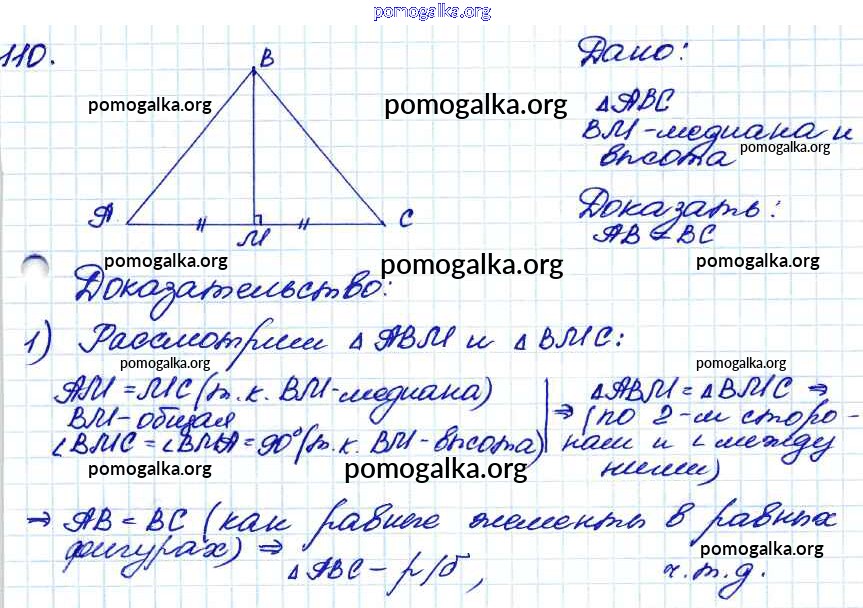 pomogalka.org
110.
B
Дано:
pomogalka.org
pomogalka.org
△ABC
BM-медиана и
высота
pomogalka.org
A
M
C
Доказать:
AB = BC
pomogalka.org
pomogalka.org
pomogalka.org
Доказательство:
1) Рассмотрим △ABM и △BMC:
pomogalka.org
pomogalka.org
AM = MC (т.к. BM-медиана)
BM-общая
∠BMC = ∠BMA = 90° (т.к. BM-высота)
⇒
△ABM = △BMC ⇒
(по 2-м сторо-
нам и ∠ между
ними)
pomogalka.org
pomogalka.org
⇒ AB = BC (как равные элементы в равных
фигурах) ⇒
△ABC - р/б,
pomogalka.org
ч.т.д.